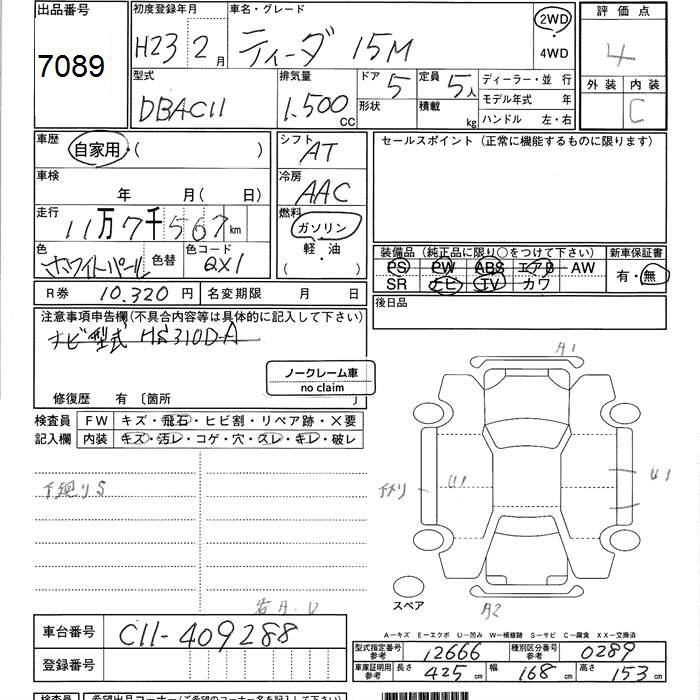 出品番号
7089
初度登録年月
H23 2月
車名・グレード
ティーダ 15M
2WD
4WD
評価点
4
外装 内装
C
型式
DBAC11
排気量
1.500 CC
ドア 5
形状
定員 5人
積載 kg
ディーラー・並行
モデル年式 年
ハンドル 左・右
車歴
自家用・( )
シフト
AT
セールスポイント (正常に機能するものに限ります)
車検
年 月( 日)
冷房
AAC
走行
11万7千567km
燃料
ガソリン
軽・油
( ・ )
色
ホワイトパール
色替
色コード
QX1
装備品 (純正品に限り○をつけて下さい)
PS PW ABS エアB AW
SR ナビ TV カワ
新車保証書
有・無
R券 10.320円
名変期限 月 日
後日品
注意事項申告欄(不具合内容等は具体的に記入して下さい)
ナビ型式 HS310D-A
ノークレーム車
no claim
修復歴 有〔箇所 〕
検査員
記入欄
FW キズ・飛石・ヒビ割・リペア跡・×要
内装 キズ・汚レ・コゲ・穴・スレ・キレ・破レ
下廻りS
A1
U1
U1
A2
スペア
A－キズ E－エクボ U－凹み W－補修跡 S－サビ C－腐食 XX－交換済
車台番号 C11-409288
登録番号
型式指定番号
参考
12666
種別区分番号
参考
0289
車庫証明用
参考
長さ 425cm 幅 168cm 高さ 153cm
検査員 希望出品コーナー(ご希望のコーナー名を記入下さい)